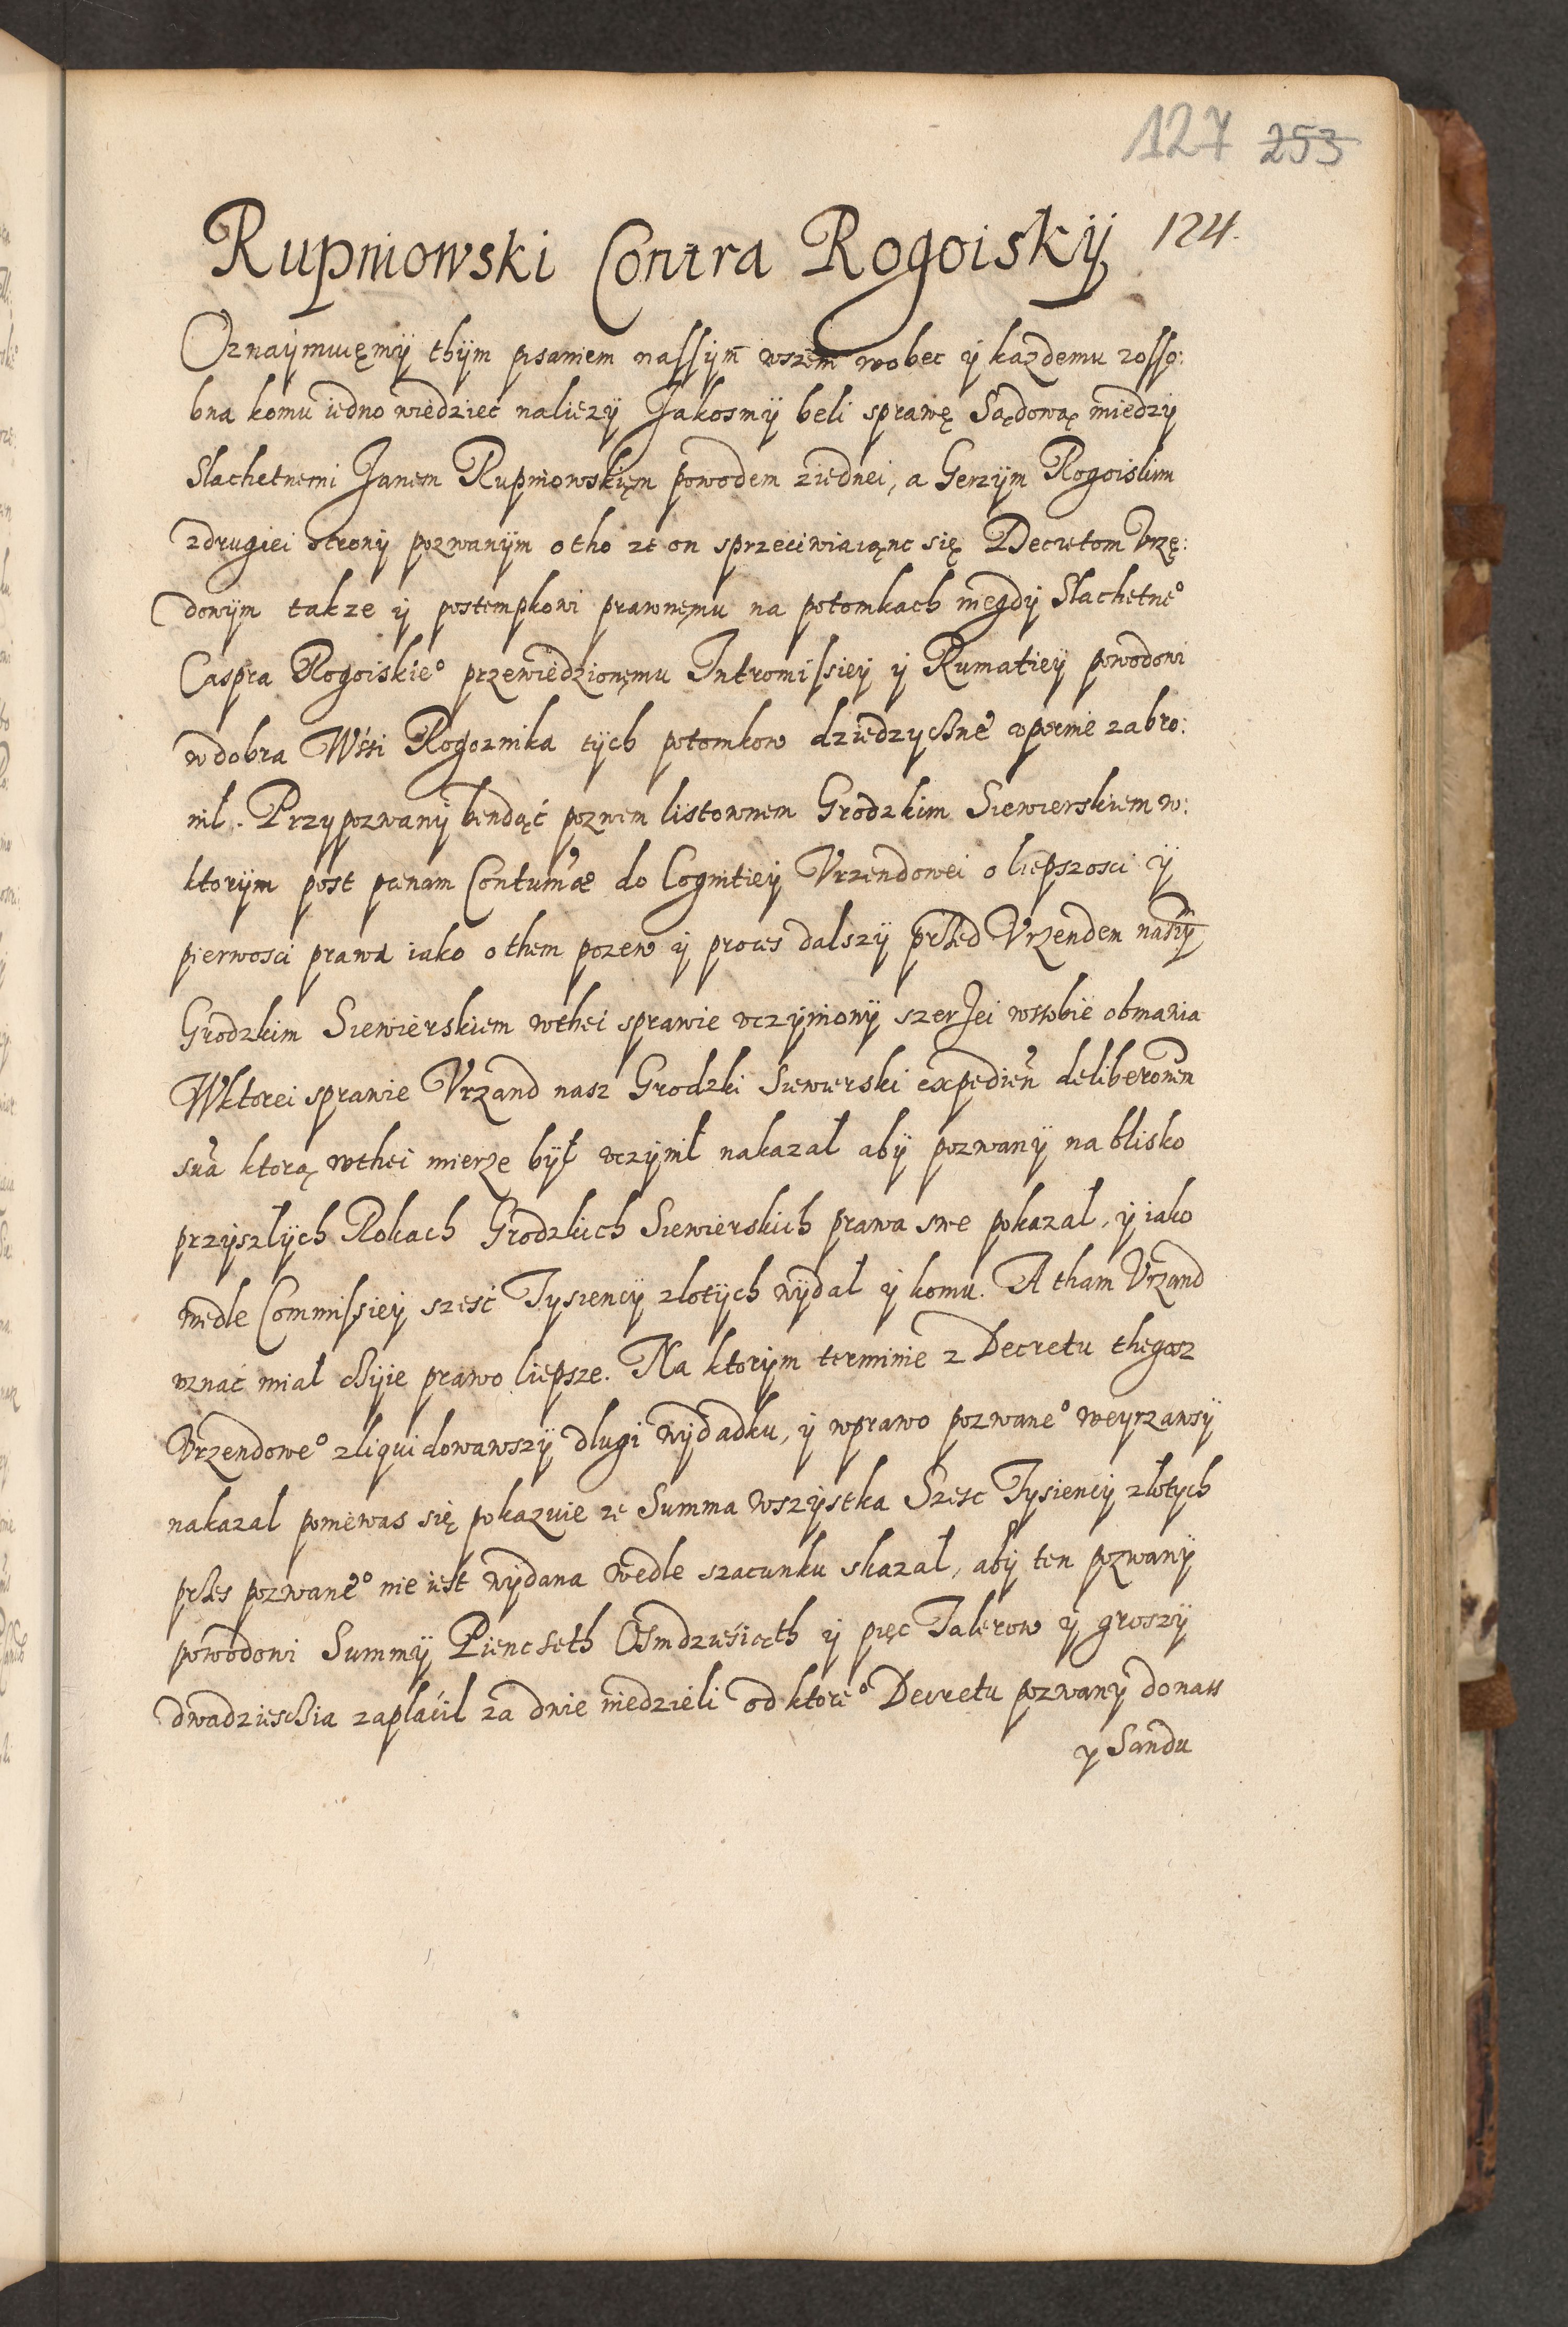 127 253
Rupniowski Contra Rogoiskÿ 124.
Oznaÿmuięmÿ thÿm pisaniem nassÿm wszem wobec ÿ kazdemu zosso:
bna komu iedno wiedziec naliezÿ Jakosmÿ beli sprawę Sądową miedzÿ
Slachetnemi Janem Rupniowskięm powodem ziednei, a Gerzÿm Rogoiskim
zdrugiei stronÿ pozwanÿm otho ze on sprzeciwiaiąnc się Decretom Vrzę:
dowÿm takze ÿ postempkowi prawnęmu na potomkach niegdÿ Slachetne°
Caspra Rogoiskie° przewiedzionęmu Intromissieÿ ÿ Rumatieÿ powodowi
wdobra Wsi Rogoznika tÿch potomkow dziedzyczne vpornie zabro:
nil. Przypozwanÿ bendąć pozwem listownem Grodzkim Siewierskiem w:
ktorÿm post pœnam Contumaæ do Cognitieÿ Vrzendowei o liepszosci ÿ
pierwosci prawa iako othem pozew ÿ proces dalszÿ przed Vrzendem naszÿ
Grodzkim Siewierskiem wthei sprawie vczÿnionÿ szerzei wsobie obmawia
Wktorei sprawie Vrzand nasz Grodzki Siewierski expedien deliberonem
sua ktorą wthei mierze bÿł vczÿnił nakazał abÿ pozwanÿ na blisko
przÿszłÿch Rokach Grodzkich Siewierskich prawa swe pokazał, ÿ iako
wedle Commissieÿ szesć Tysiencÿ złotÿch wÿdał ÿ komu. A tham Vrzand
vznać miał czÿie prawo liepsze. Na ktorÿm terminie z Decretu thegosz
Vrzendowe° zliquidowawszÿ dlugi wÿdadku, ÿ wprawo pozwane° weyrzawsÿ
nakazał poniewas się pokazuie ze Summa wszÿstka Szesc Tysiencÿ złotych
przes pozwane° nie iest wÿdana wedle szacunku skazał, abÿ ten pozwanÿ
powodowi Summÿ Piencseth Osmdziesiąth ÿ pięc Talerow ÿ groszÿ
dwadziesczia zapłacił za dwie niedzieli od ktore° Decretu pozwanÿ do nass
y Sandu